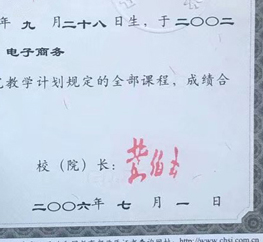 年 九 月二十八日生，于二〇〇二
电子商务
教学计划规定的全部课程，成绩合
校（院）长：
二〇〇六年 七 月 一 日
http://www.chsi.com.cn